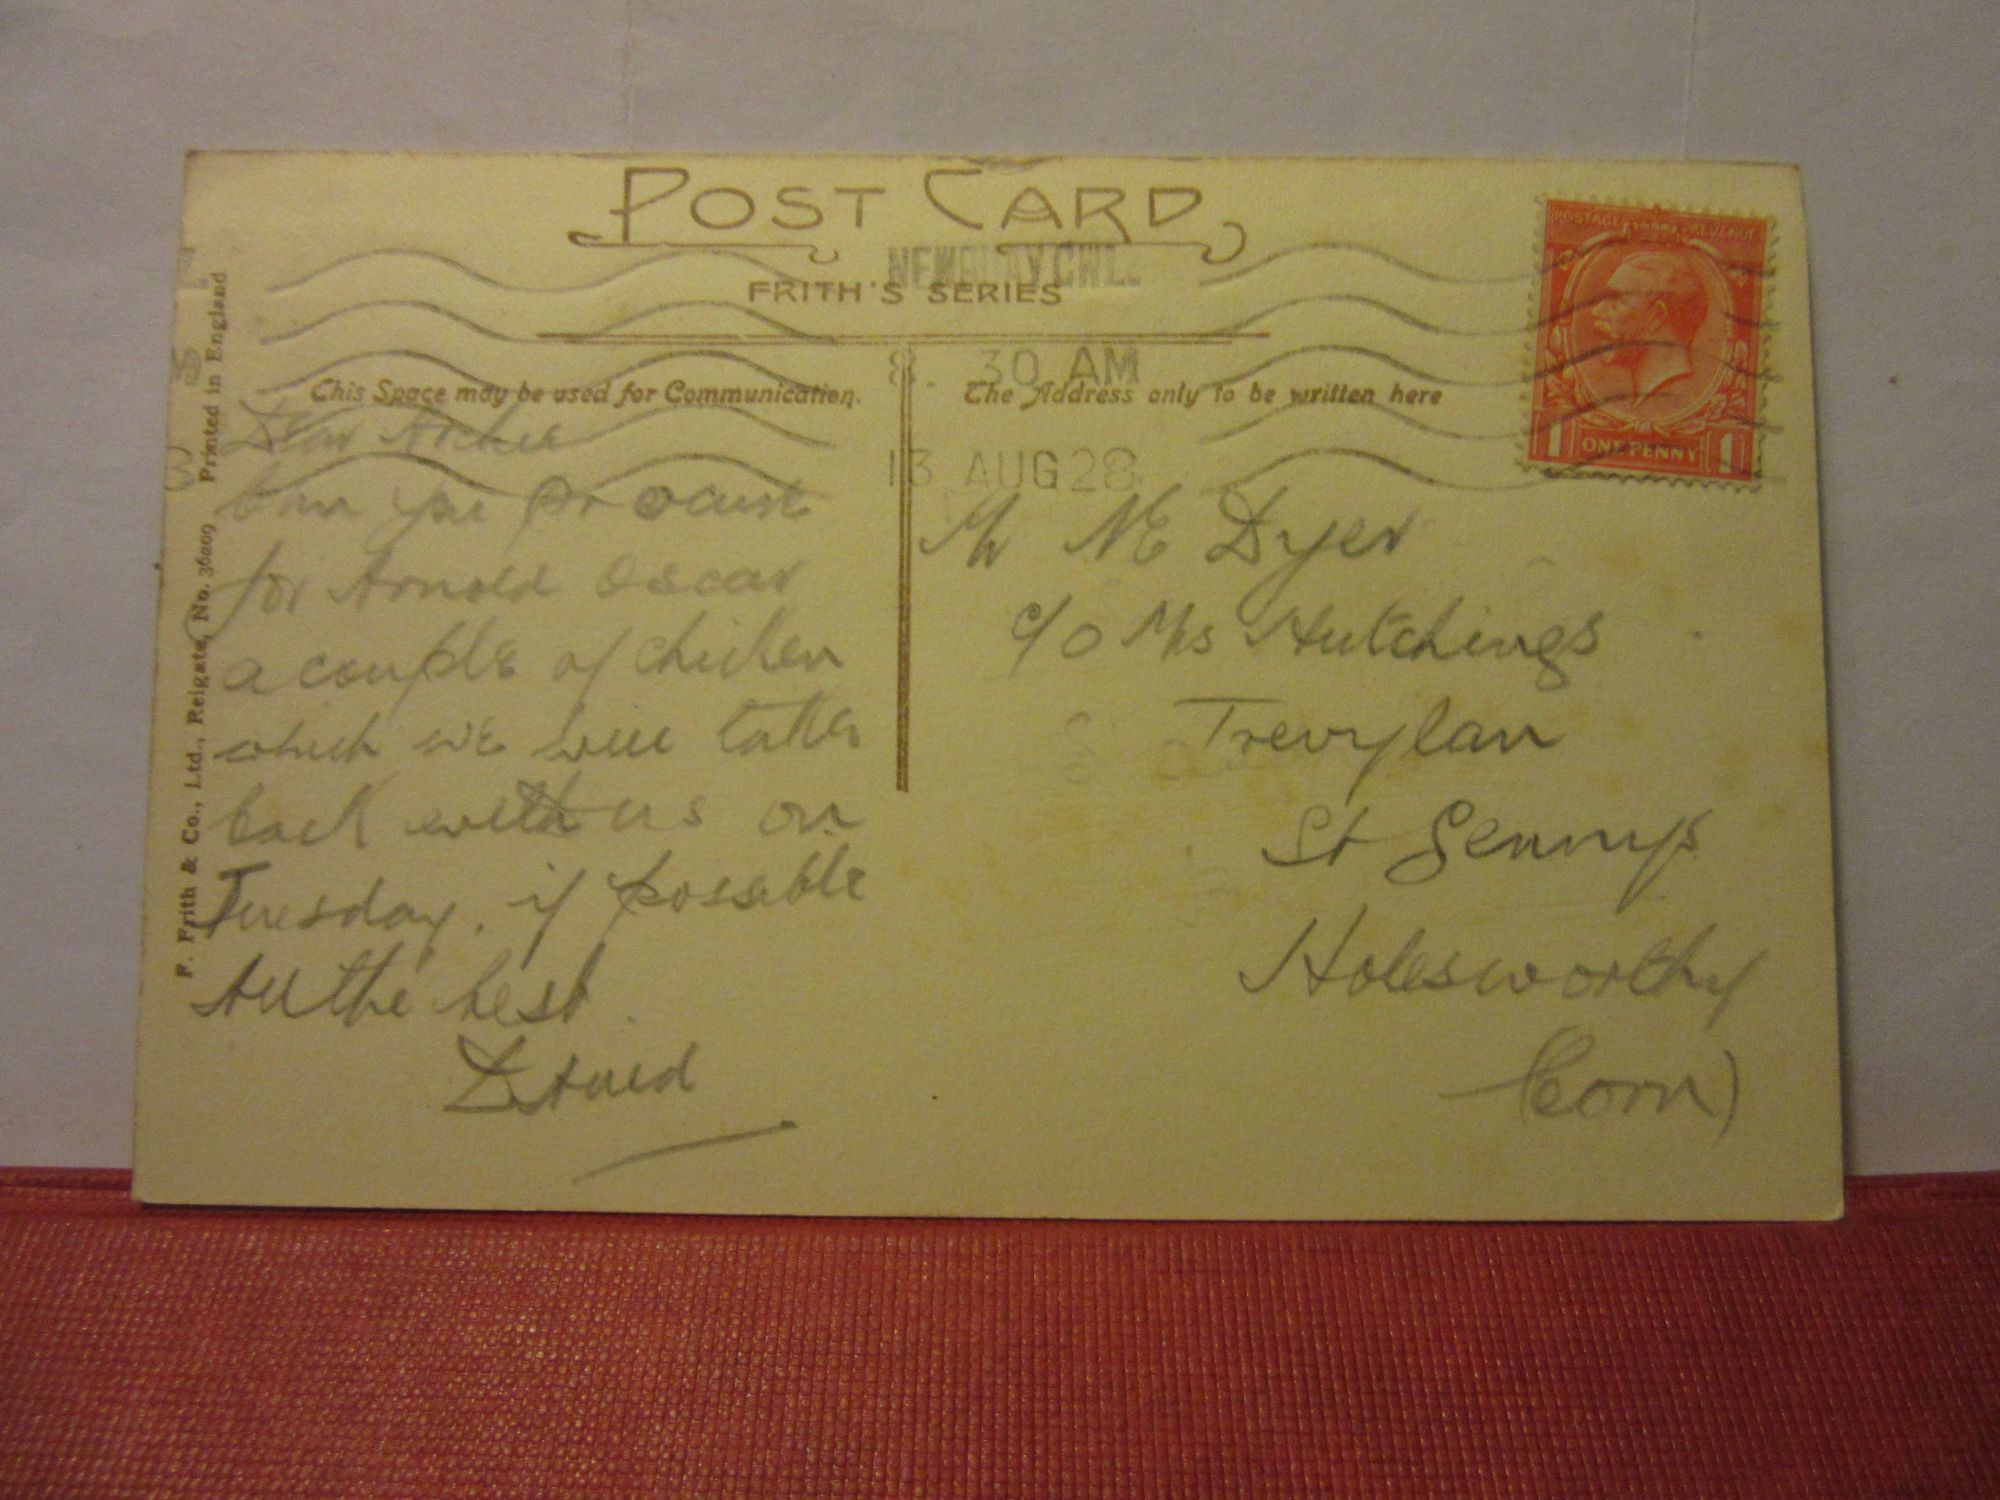 POST CARD
FRITH'S SERIES
NEWQUAY CWL.
8. 30 AM
13 AUG 28
POSTAGE REVENUE
1 ONE PENNY 1
This Space may be used for Communication.
The Address only to be written here
F. Frith & Co., Ltd., Reigate, No. 36009 Printed in England
Dear Archie
Can you procure
for Arnold Oscar
a couple of chicken
which we will
back with us on
Tuesday, if possible
All the best.
Mr Dyer
c/o Mrs Hutchings
Trevylan
St Gennys
Holesworthy
(Corn)